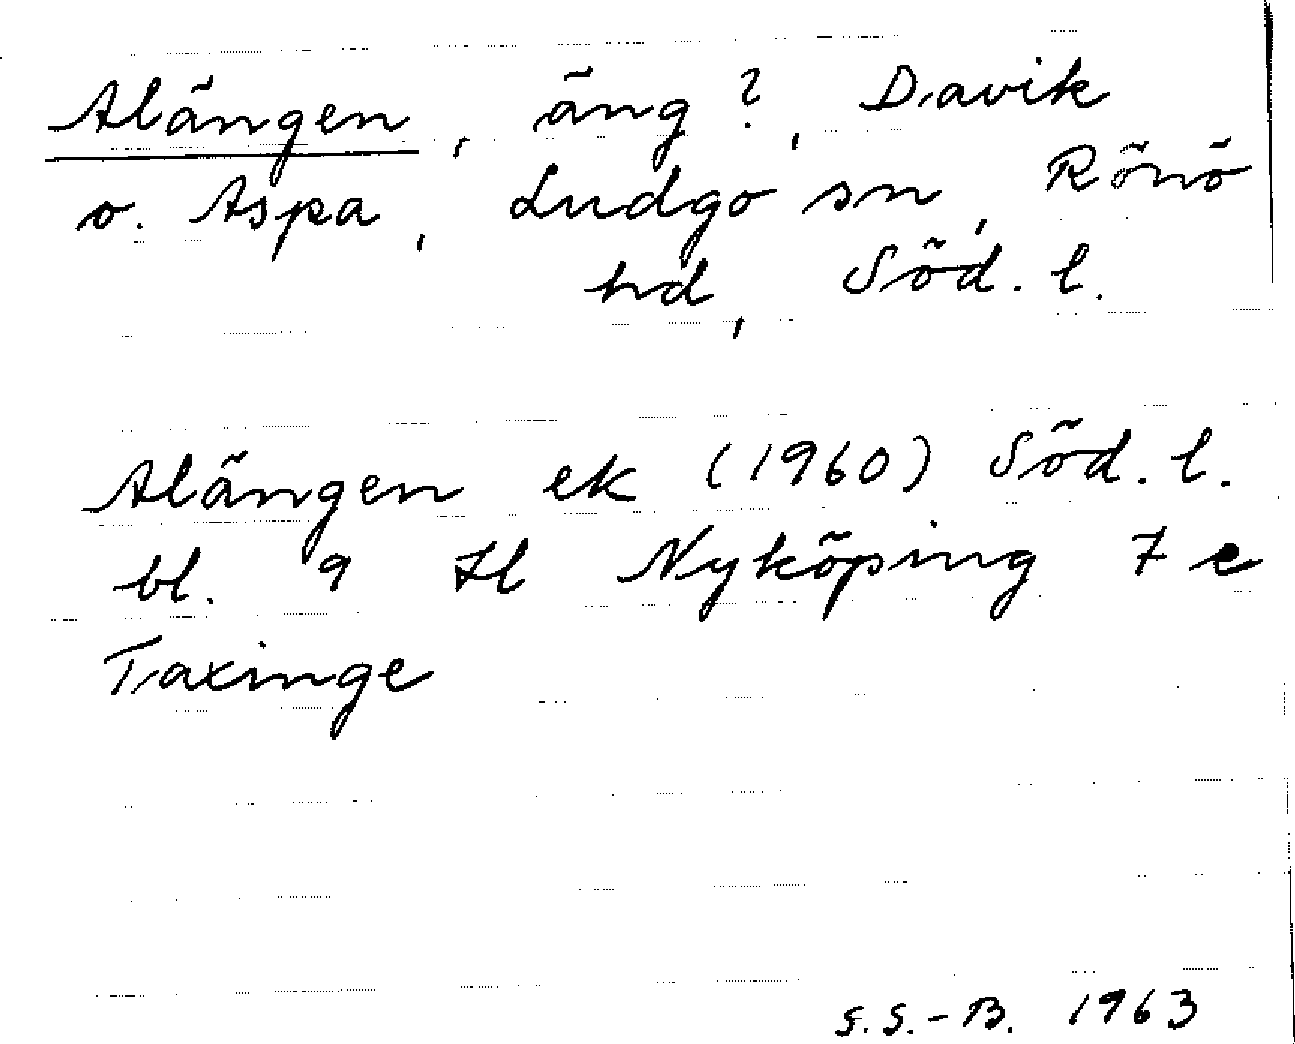 Alängen, äng?, Davik
o. Aspa, Ludgo sn, Rönö
hd, Söd. l.
Alängen ek (1960) Söd. l.
bl. 9 Il Nyköping 7 e
Taxinge
S.S.-B. 1963